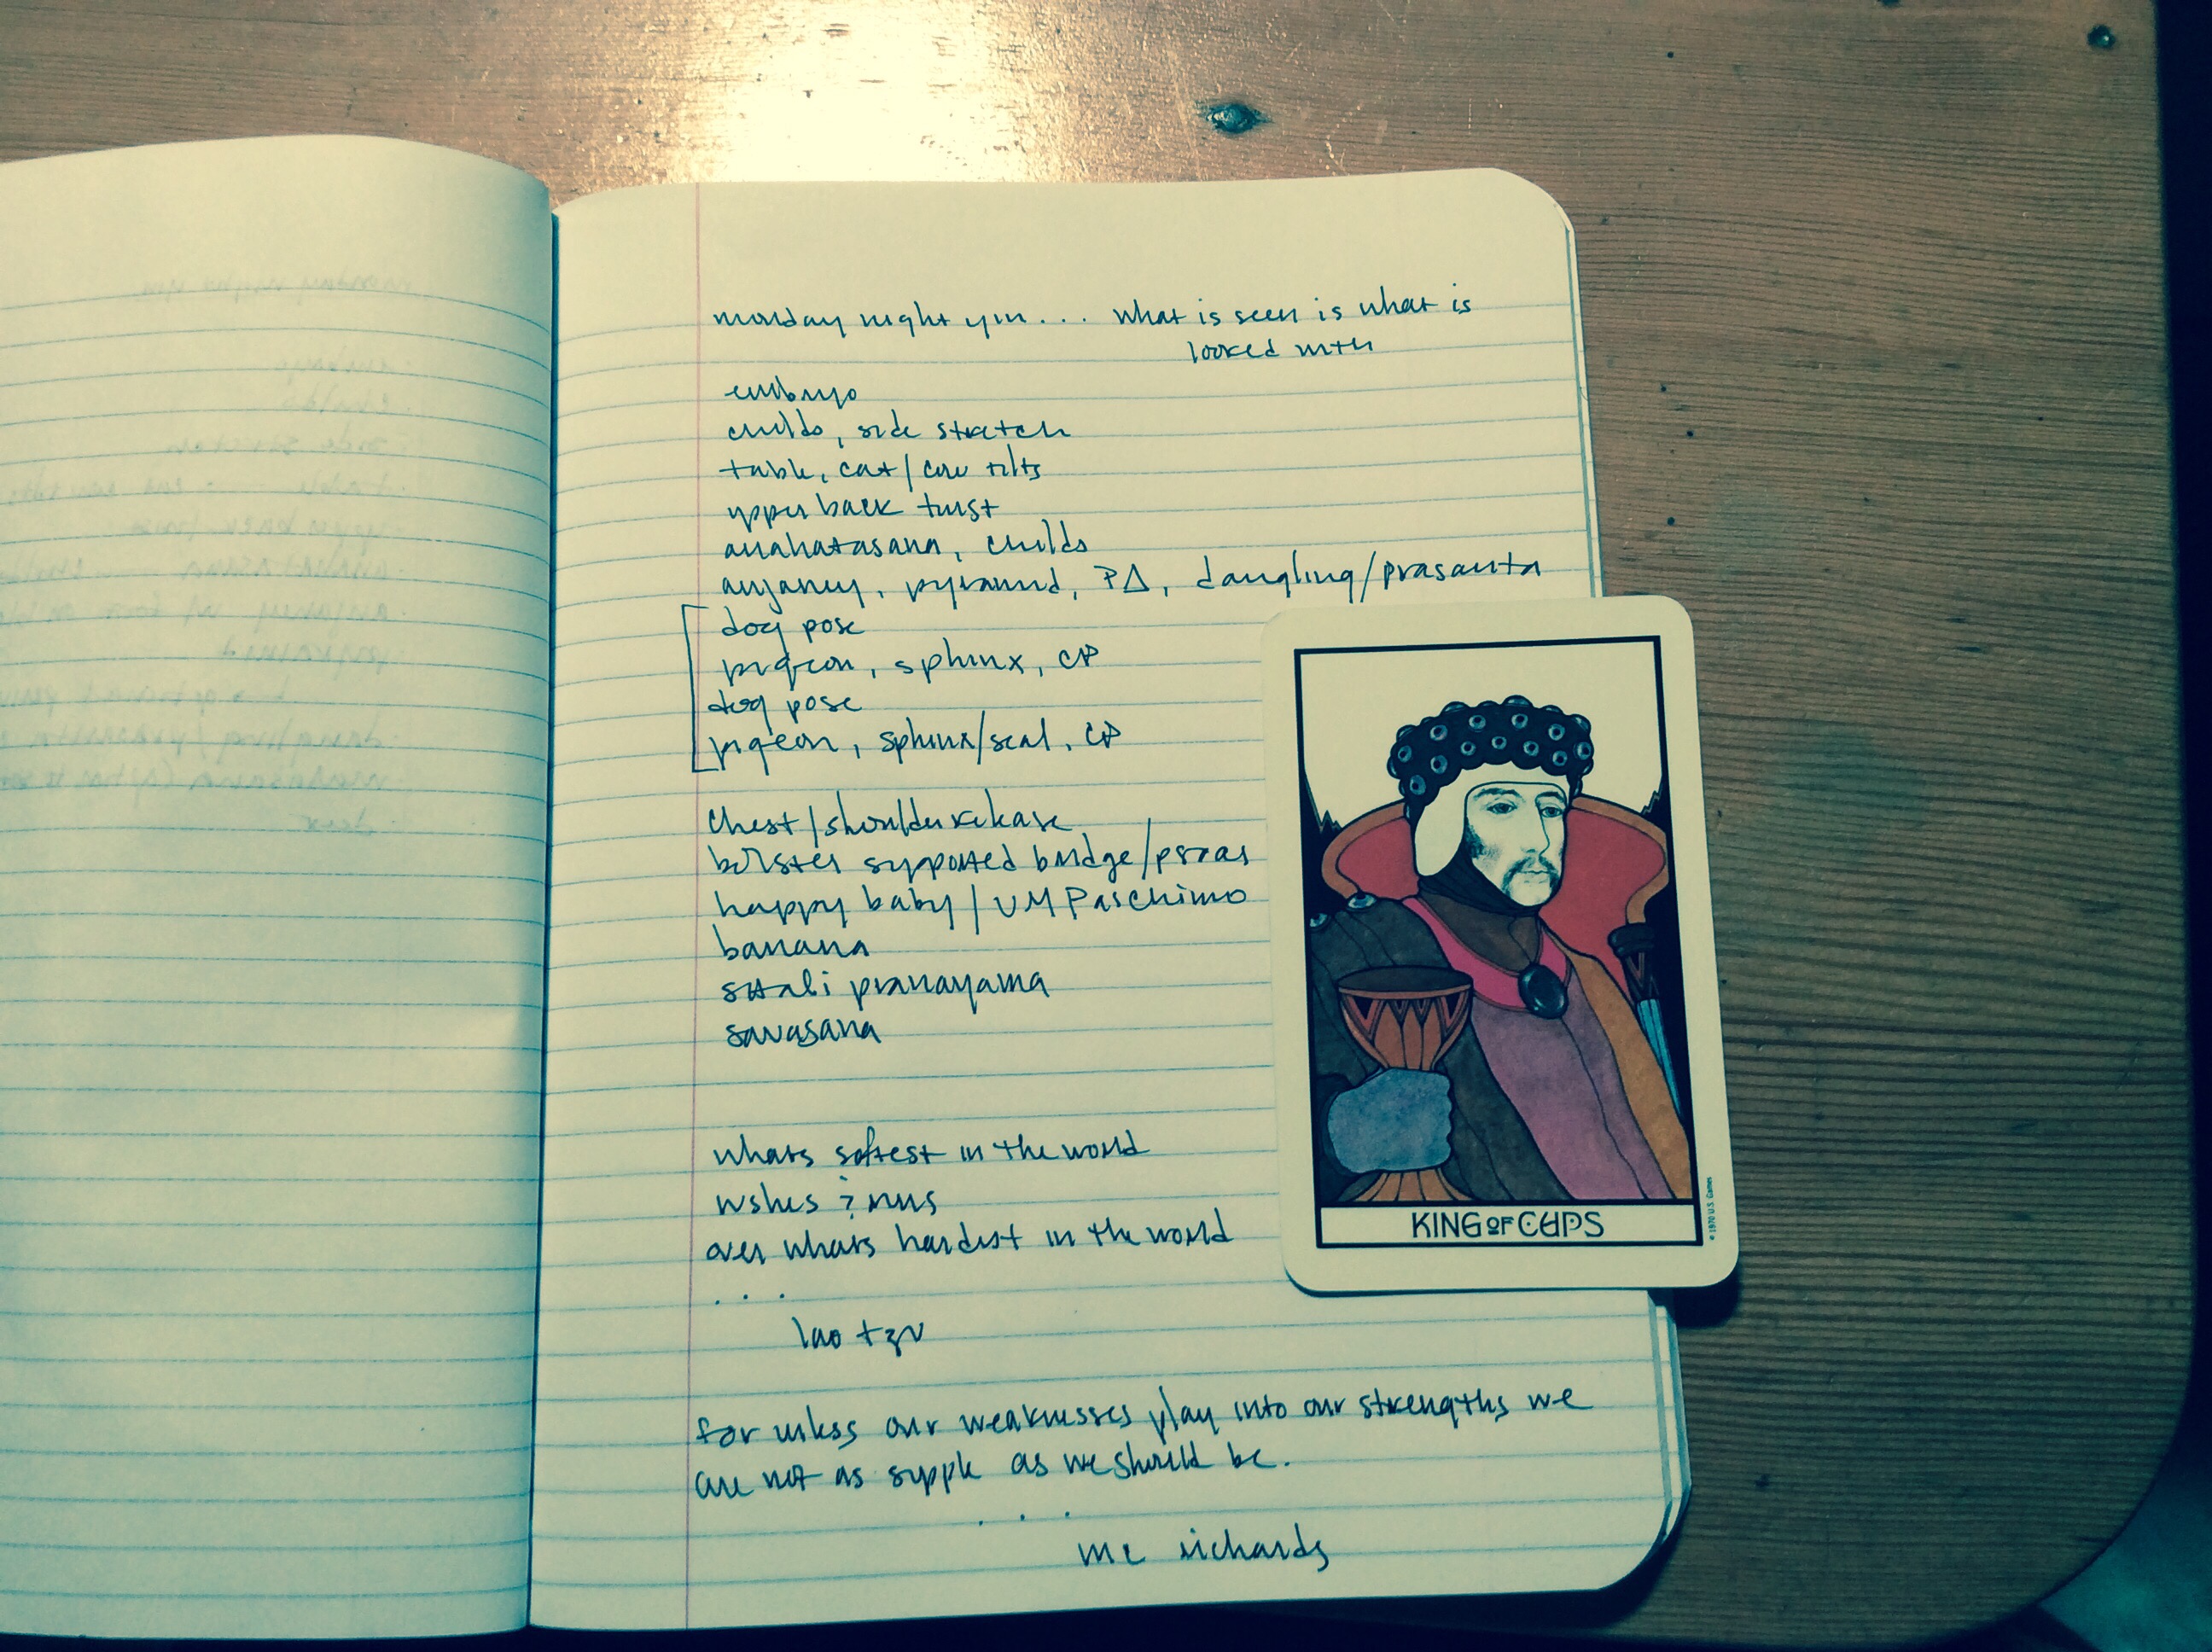 monday night yin... what is seen is what is
looked with
embryo
childs, side stretch
table, cat/cow tilts
upper back twist
anahatasana, childs
anjaney, pyramid, P∆, dangling/prasarita
dog pose
pigeon, sphinx, CP
dog pose
pigeon, sphinx/seal, CP
chest/shoulder release
bolster supported bridge/psoas
happy baby/ UM Paschimo
banana
sitali pranayama
savasana
whats softest in the world
rushes & runs
over whats hardest in the world
...
lao tzu
for unless our weaknesses play into our strengths we
are not as supple as we should be.
...
mc richards
KING OF CUPS
©1970 U.S. Games